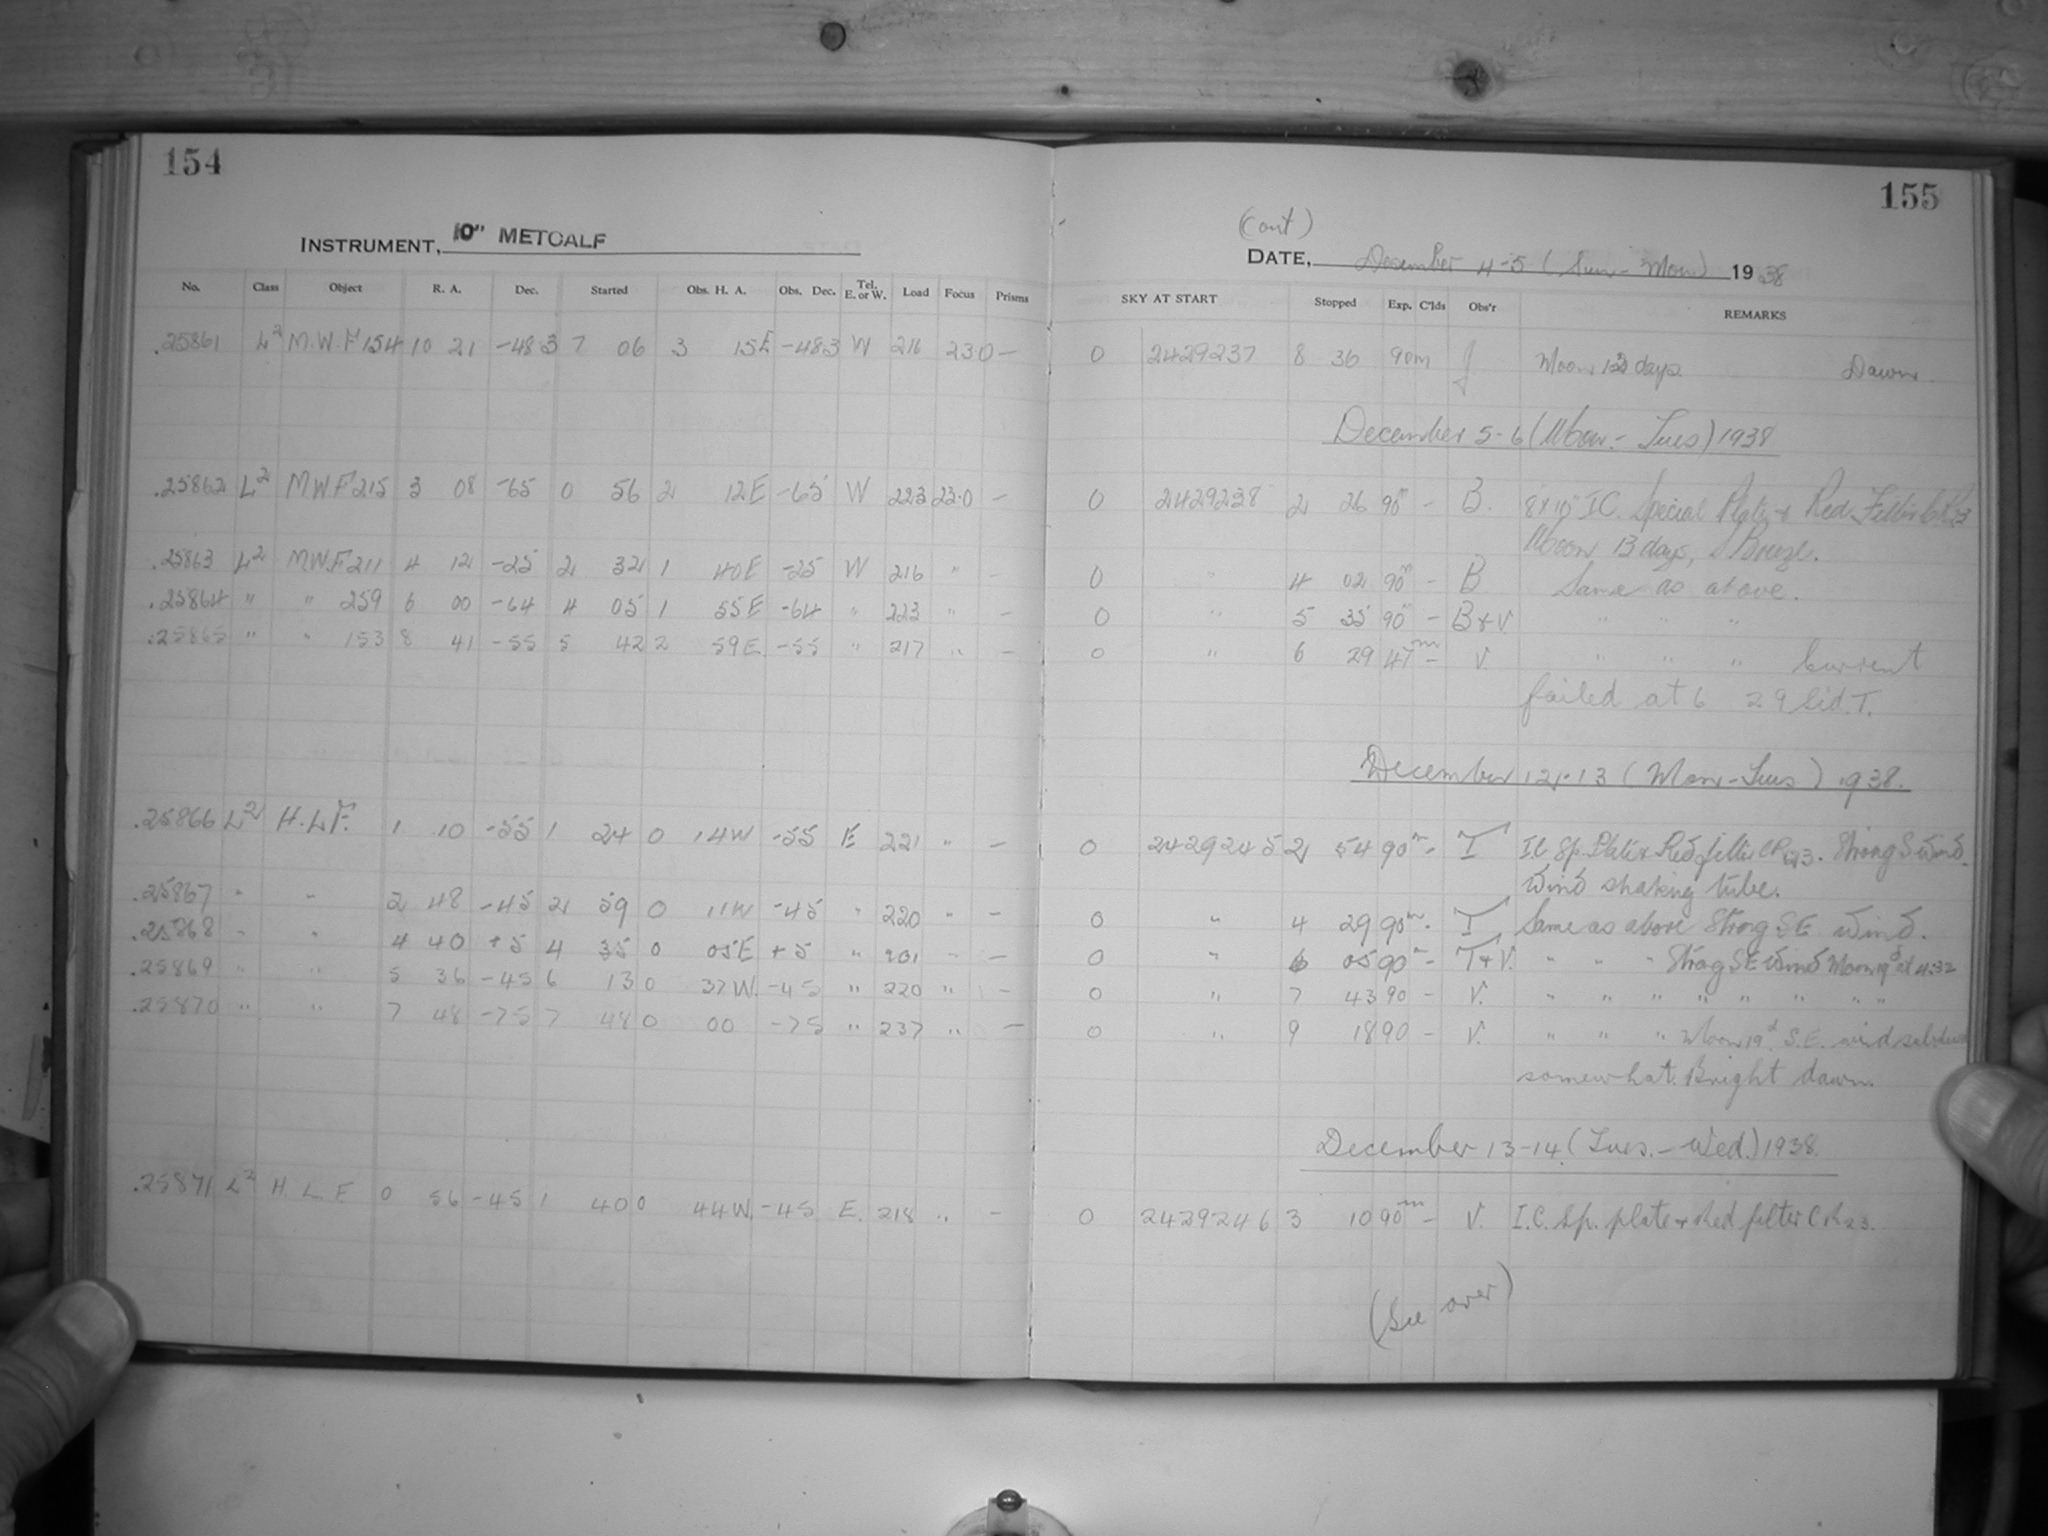 154
INSTRUMENT, 10" METCALF
No. Class Object R. A. Dec. Started Obs. H. A. Obs. Dec. Tel. E. or W. Load Focus Prisms
.25861 L2 M.W.F 154 10 21 -48 3 7 06 3 15E -48 3 W 216 23.0 —
.25862 L2 M.W.F 215 3 08 -65 0 56 2 12E -65 W 223 23.0 —
.25863 L2 M.W.F. 211 4 12 -25 2 32 1 40E -25 W 216 " —
.25864 " " 259 6 00 -64 4 05 1 55E -64 " 223 " —
.25865 " " 153 8 41 -55 5 42 2 59E -55 " 217 " —
.25866 L2 H.L.F. 1 10 -55 1 24 0 14W -55 E 221 " —
.25867 " " 2 48 -45 2 59 0 11W -45 " 220 " —
.25868 " " 4 40 +5 4 35 0 05E +5 " 201 " —
.25869 " " 5 36 -45 6 13 0 37W. -45 " 220 " —
.25870 " " 7 48 -75 7 48 0 00 -75 " 237 " —
.25871 L2 H. L. F. 0 56 -45 1 40 0 44W. -45 E. 218 " —
155
(Cont)
DATE, December 4-5 (Sun - Mon) 1938
SKY AT START Stopped Exp. C'lds Obs'r REMARKS
0 2429237 8 36 90m J Moon 12 days. Dawn
December 5-6 (Mon - Tues) 1938
0 2429238 2 26 90m - B. 8x10" I.C. Special Plate & Red Filter
Moon 13 days, S Breeze.
0 " 4 02 90m - B Same as above.
0 " 5 35 90m - B & V " " "
0 " 6 29 47m - V. " " " Current
failed at 6 29 Sid. T.
December 12-13 (Mon - Tues) 1938.
0 2429245 2 54 90m - T I.C. Sp. Plate & Red filter CR 23. Strong S wind.
Wind shaking tube.
0 " 4 29 90m - T Same as above Strong S E Wind.
0 " 6 05 90m - T & V. " " " Strong S E Wind Moon 19d at 4:32
0 " 7 43 90 - V. " " " " " " " "
0 " 9 18 90 - V. " " " Moon 19d. S.E. wind
somewhat. Bright dawn.
December 13-14 (Tues. - Wed.) 1938.
0 2429246 3 10 90m - V. I.C. Sp. plate & Red filter C R 23.
(See over)